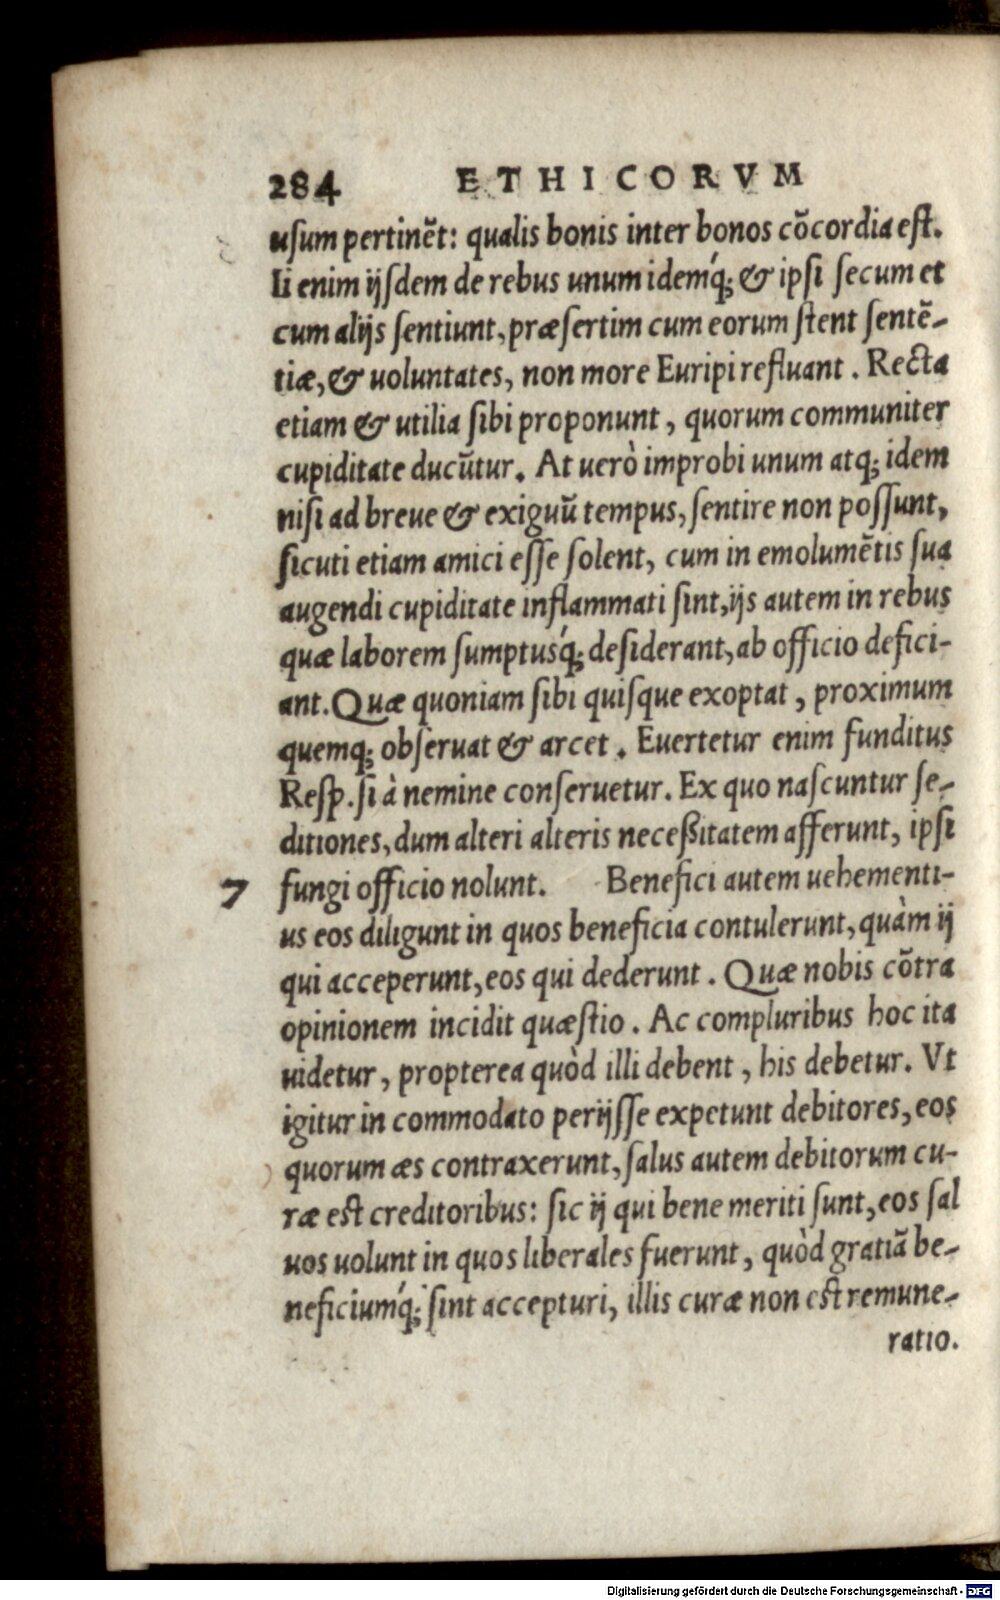 284 ETHICORVM
usum pertinēt: qualis bonis inter bonos cōcordia est.
Ii enim ijsdem de rebus unum idemq́; & ipsi secum et
cum alijs sentiunt, præsertim cum eorum stent sentē-
tiæ, & uoluntates, non more Euripi refluant. Recta
etiam & utilia sibi proponunt, quorum communiter
cupiditate ducūtur. At uerò improbi unum atq; idem
nisi ad breue & exiguū tempus, sentire non possunt,
sicuti etiam amici esse solent, cum in emolumētis sua
augendi cupiditate inflammati sint, ijs autem in rebus
quæ laborem sumptusq́; desiderant, ab officio defici-
ant. Quæ quoniam sibi quisque exoptat, proximum
quemq; obseruat & arcet. Euertetur enim funditus
Resp. si à nemine conseruetur. Ex quo nascuntur se-
ditiones, dum alteri alteris neceßitatem afferunt, ipsi
7 fungi officio nolunt. Benefici autem uehementi-
us eos diligunt in quos beneficia contulerunt, quàm ij
qui acceperunt, eos qui dederunt. Quæ nobis cōtra
opinionem incidit quæstio. Ac compluribus hoc ita
uidetur, propterea quòd illi debent, his debetur. Vt
igitur in commodato perijsse expetunt debitores, eos
quorum æs contraxerunt, salus autem debitorum cu-
ræ est creditoribus: sic ij qui bene meriti sunt, eos sal
uos uolunt in quos liberales fuerunt, quòd gratiā be-
neficiumq́; sint accepturi, illis curæ non est remune-
ratio.
Digitalisierung gefördert durch die Deutsche Forschungsgemeinschaft - DFG